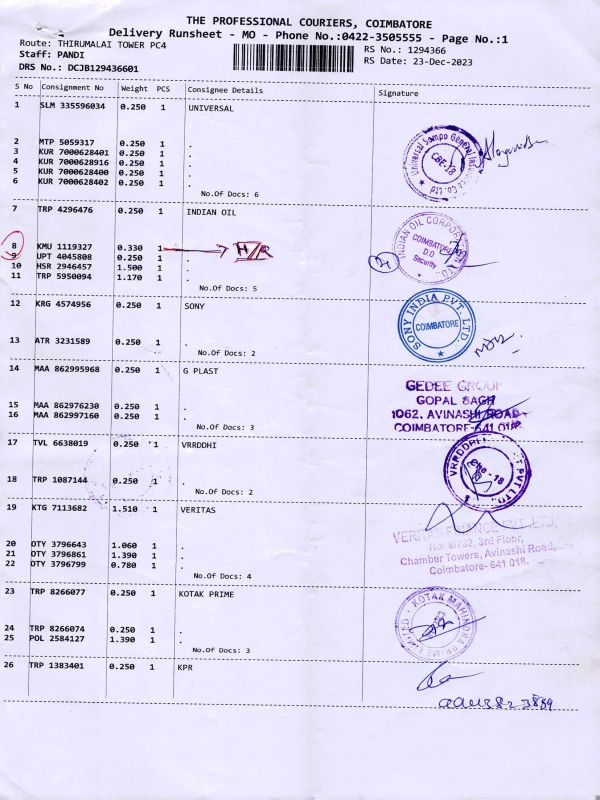 THE PROFESSIONAL COURIERS, COIMBATORE
Delivery Runsheet - MO - Phone No.:0422-3505555 - Page No.:1
Route: THIRUMALAI TOWER PC4 RS No.: 1294366
Staff: PANDI RS Date: 23-Dec-2023
DRS No.: DCJB129436601
S No Consignment No Weight PCS Consignee Details Signature
1 SLM 335596034 0.250 1 UNIVERSAL
2 MTP 5059317 0.250 1 .
3 KUR 7000628401 0.250 1 .
4 KUR 7000628916 0.250 1 .
5 KUR 7000628400 0.250 1 .
6 KUR 7000628402 0.250 1 .
No.Of Docs: 6
Universal Sompo General Insurance Co. Ltd
CBE-18
7 TRP 4296476 0.250 1 INDIAN OIL
8 KMU 1119327 0.330 1 H/R
9 UPT 4045808 0.250 1 .
10 HSR 2946457 1.500 1 .
11 TRP 5950094 1.170 1 .
No.Of Docs: 5
INDIAN OIL CORPORATION LTD
COIMBATORE
D.O
Security
12 KRG 4574956 0.250 1 SONY
13 ATR 3231589 0.250 1 .
No.Of Docs: 2
SONY INDIA PVT. LTD.
COIMBATORE
14 MAA 862995968 0.250 1 G PLAST
15 MAA 862976230 0.250 1 .
16 MAA 862997160 0.250 1 .
No.Of Docs: 3
GEDEE GROUP
GOPAL BAGH
1062, AVINASHI ROAD
COIMBATORE-641 018
17 TVL 6638019 0.250 1 VRRDDHI
18 TRP 1087144 0.250 1 .
No.Of Docs: 2
VRRDDHI PVT LTD.
CBE-18
19 KTG 7113682 1.510 1 VERITAS
20 DTY 3796643 1.060 1 .
21 DTY 3796861 1.390 1 .
22 DTY 3796799 0.780 1 .
No.Of Docs: 4
VERITAS FINANCE PVT. LTD,
No: 8/732, 3rd Floor,
Chamber Towers, Avinashi Road,
Coimbatore- 641 018.
23 TRP 8266077 0.250 1 KOTAK PRIME
24 TRP 8266074 0.250 1 .
25 POL 2584127 1.390 1 .
No.Of Docs: 3
KOTAK MAHINDRA PRIME LIMITED
26 TRP 1383401 0.250 1 KPR